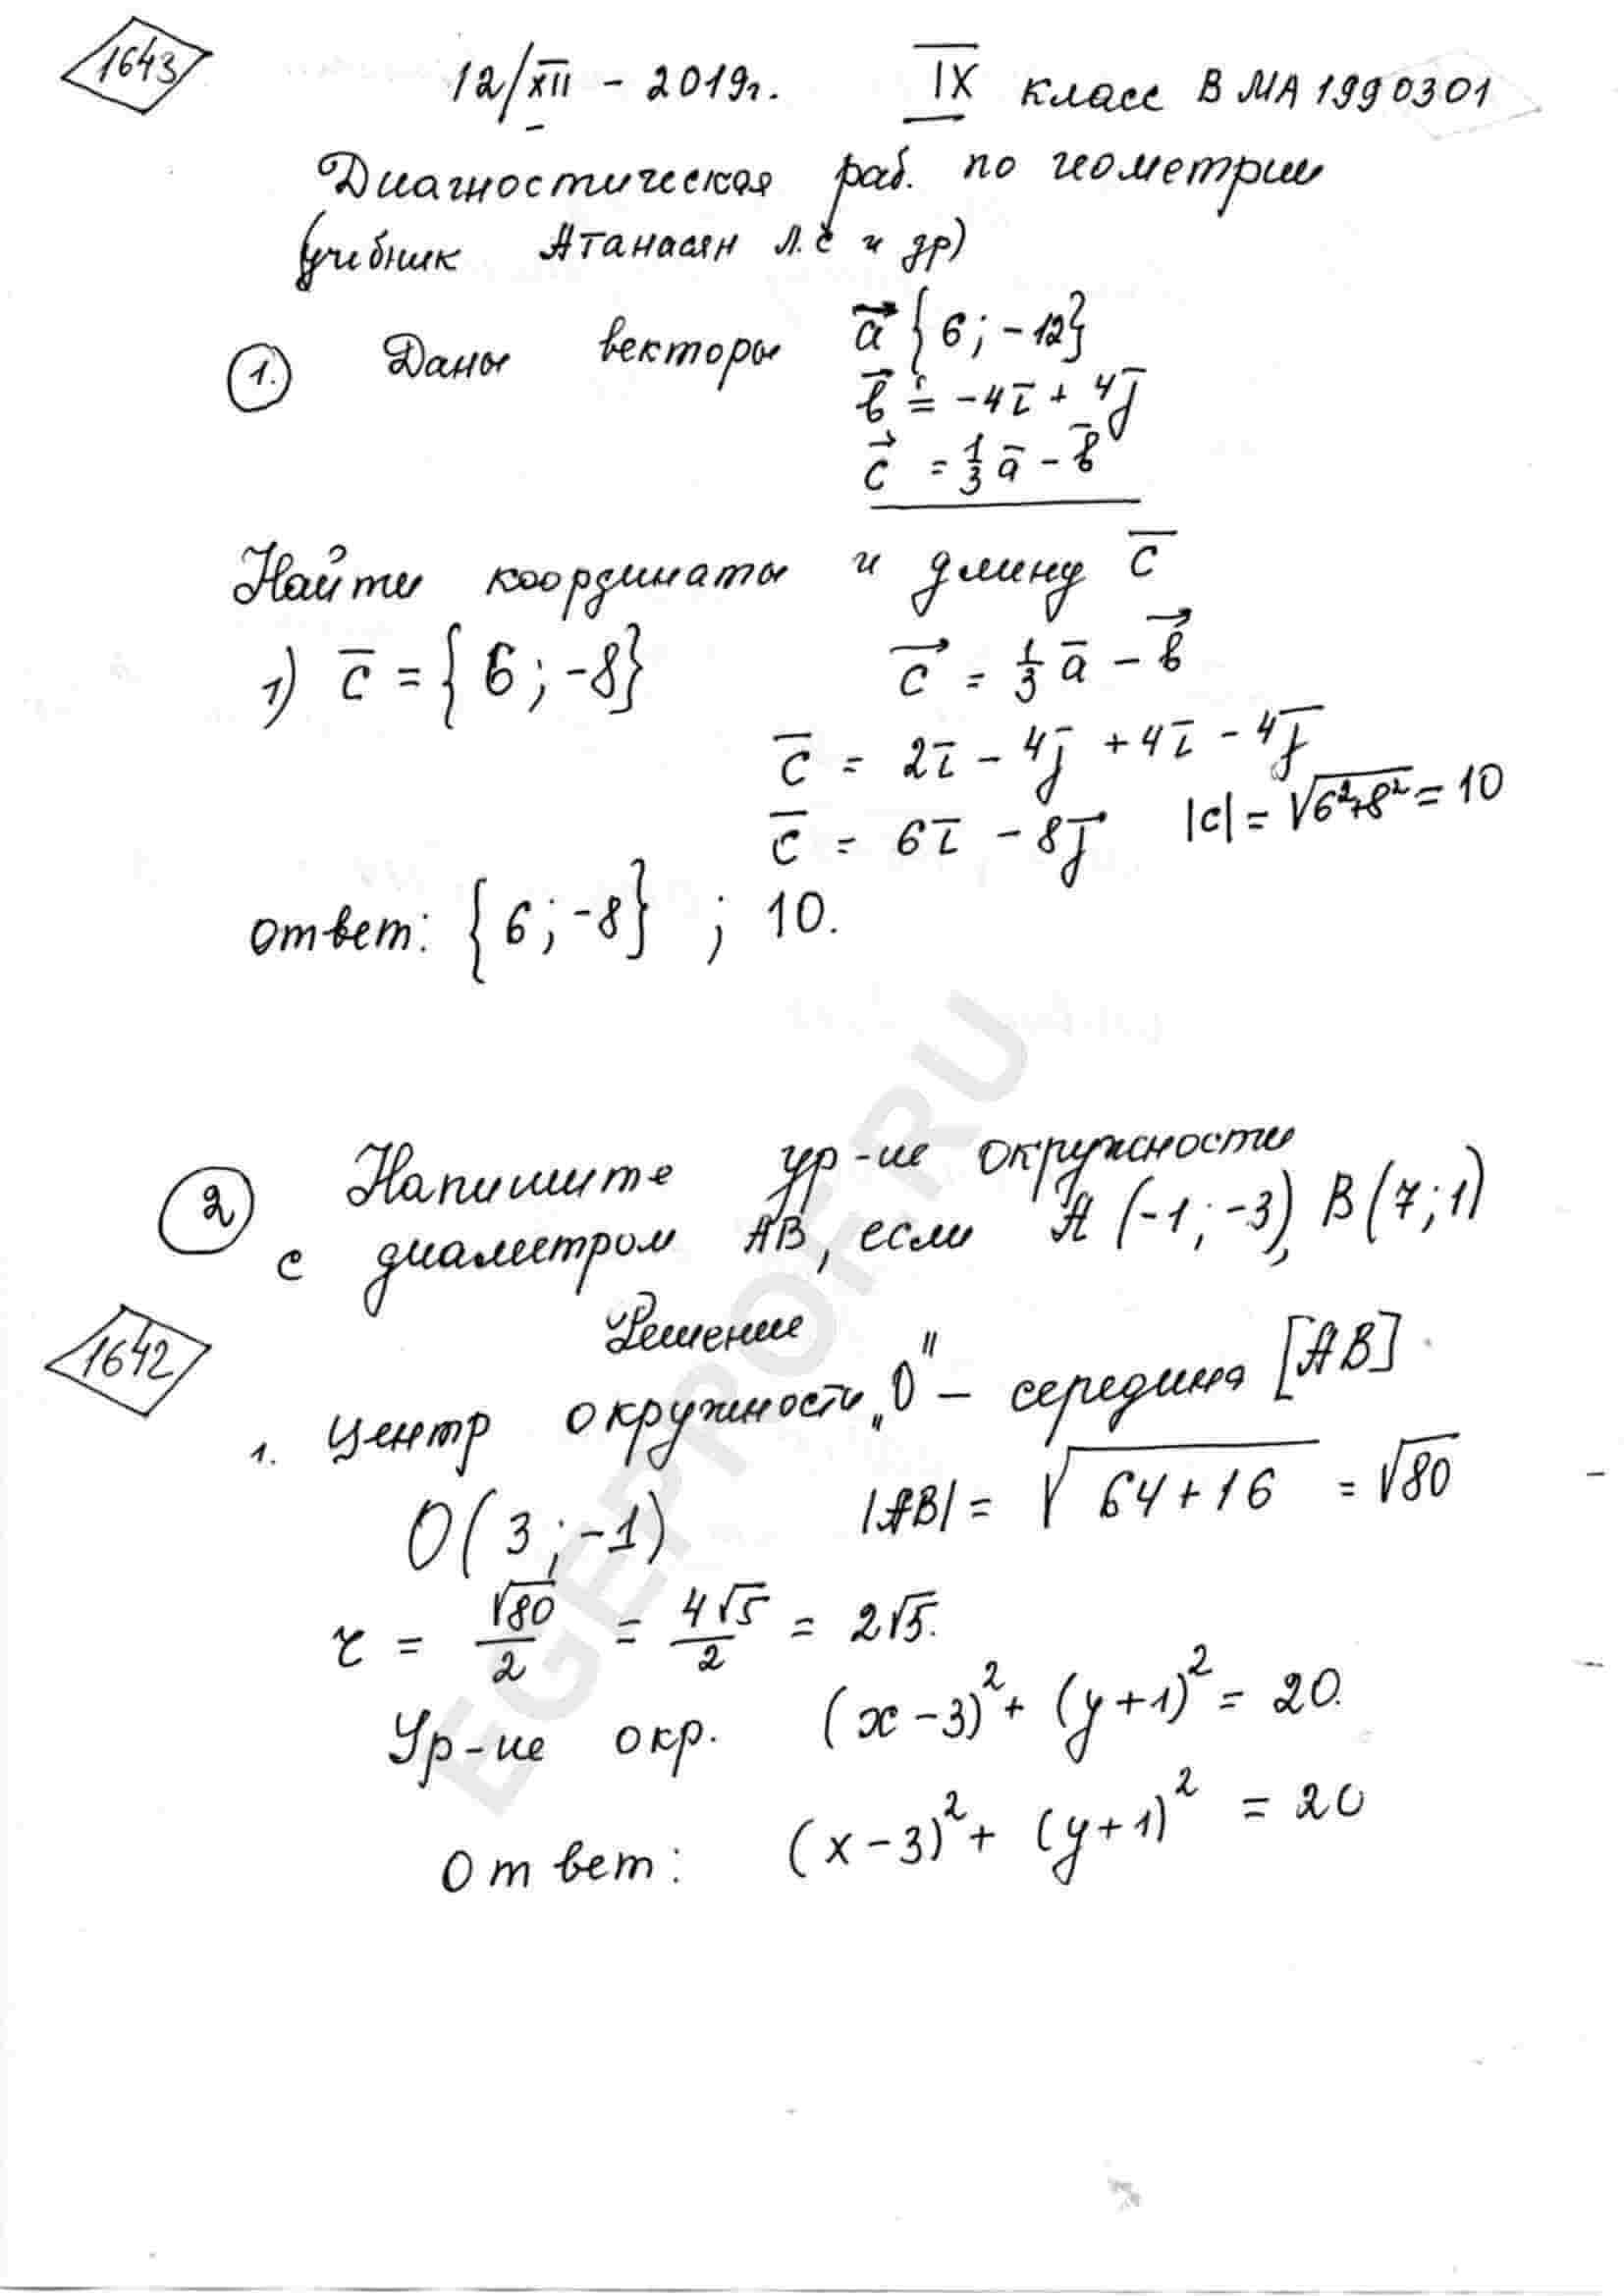 1643
12/XII - 2019г. IX класс В МА1990301
Диагностическая раб. по геометрии
(учебник Атанасян Л.С и др)
1. Даны векторы a {6; -12}
b = -4i + 4j
c = 1/3 a - b
Найти координаты и длину c
1) c = {6; -8} c = 1/3 a - b
c = 2i - 4j + 4i - 4j
c = 6i - 8j |c| = √6²+8² = 10
ответ: {6; -8} ; 10.
2 Напишите ур-ие окружности
с диаметром AB, если A (-1; -3), B (7; 1)
1642
Решение
1. Центр окружности „O" - середина [AB]
O(3; -1) |AB| = √64+16 = √80
r = √80/2 = 4√5/2 = 2√5.
Ур-ие окр. (x-3)² + (y+1)² = 20.
Ответ: (x-3)² + (y+1)² = 20
EGEPROF.RU